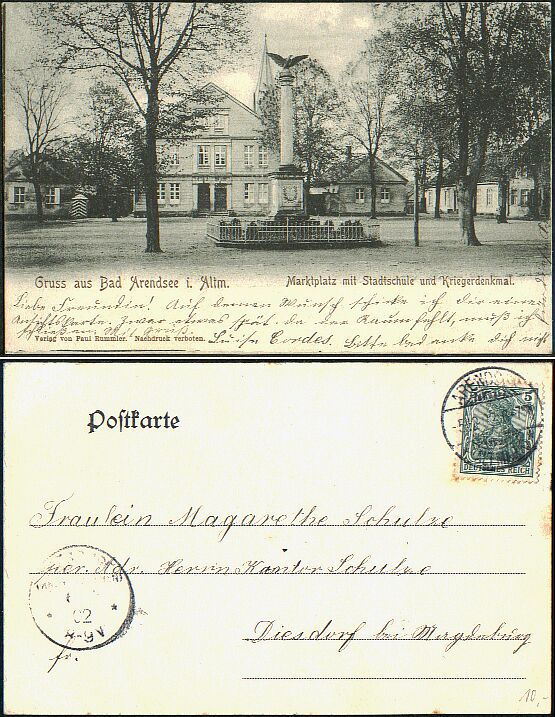 Gruss aus Bad Arendsee i. Altm.
Marktplatz mit Stadtschule und Kriegerdenkmal.
Liebe Freundin! Auf deinen Wunsch schicke ich dir eine
Ansichtskarte. Zwar etwas spät, da der Raum fehlt, muß ich
schließen. Mit Gruß
Luise Cordes. Bitte bedanke dich nicht
Verlag von Paul Rummler. Nachdruck verboten.
Postkarte
ARENDS
5
DEUTSCHES REICH
Fräulein Magarethe Schulze
per. Adr. Herrn Kantor Schulze
Diesdorf bei Magdeburg
fr.
* 02 *
8-9V
10,-